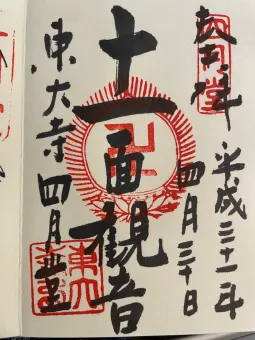 奉拝
平成三十一年
四月三十日
十一面観音
東大寺 四月堂